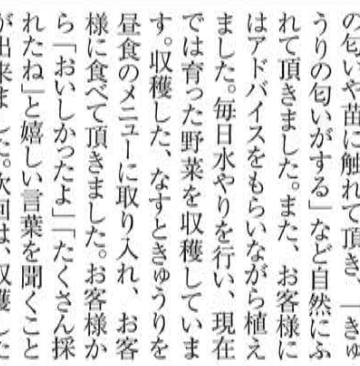 の匂いや苗に触れて頂き、「きゅ
うりの匂いがする」など自然にふ
れて頂きました。また、お客様に
はアドバイスをもらいながら植え
ました。毎日水やりを行い、現在
では育った野菜を収穫していま
す。収穫した、なすときゅうりを
昼食のメニューに取り入れ、お客
様に食べて頂きました。お客様か
ら「おいしかったよ」「たくさん採
れたね」と嬉しい言葉を聞くこと
が出来ました。次回は、収穫した